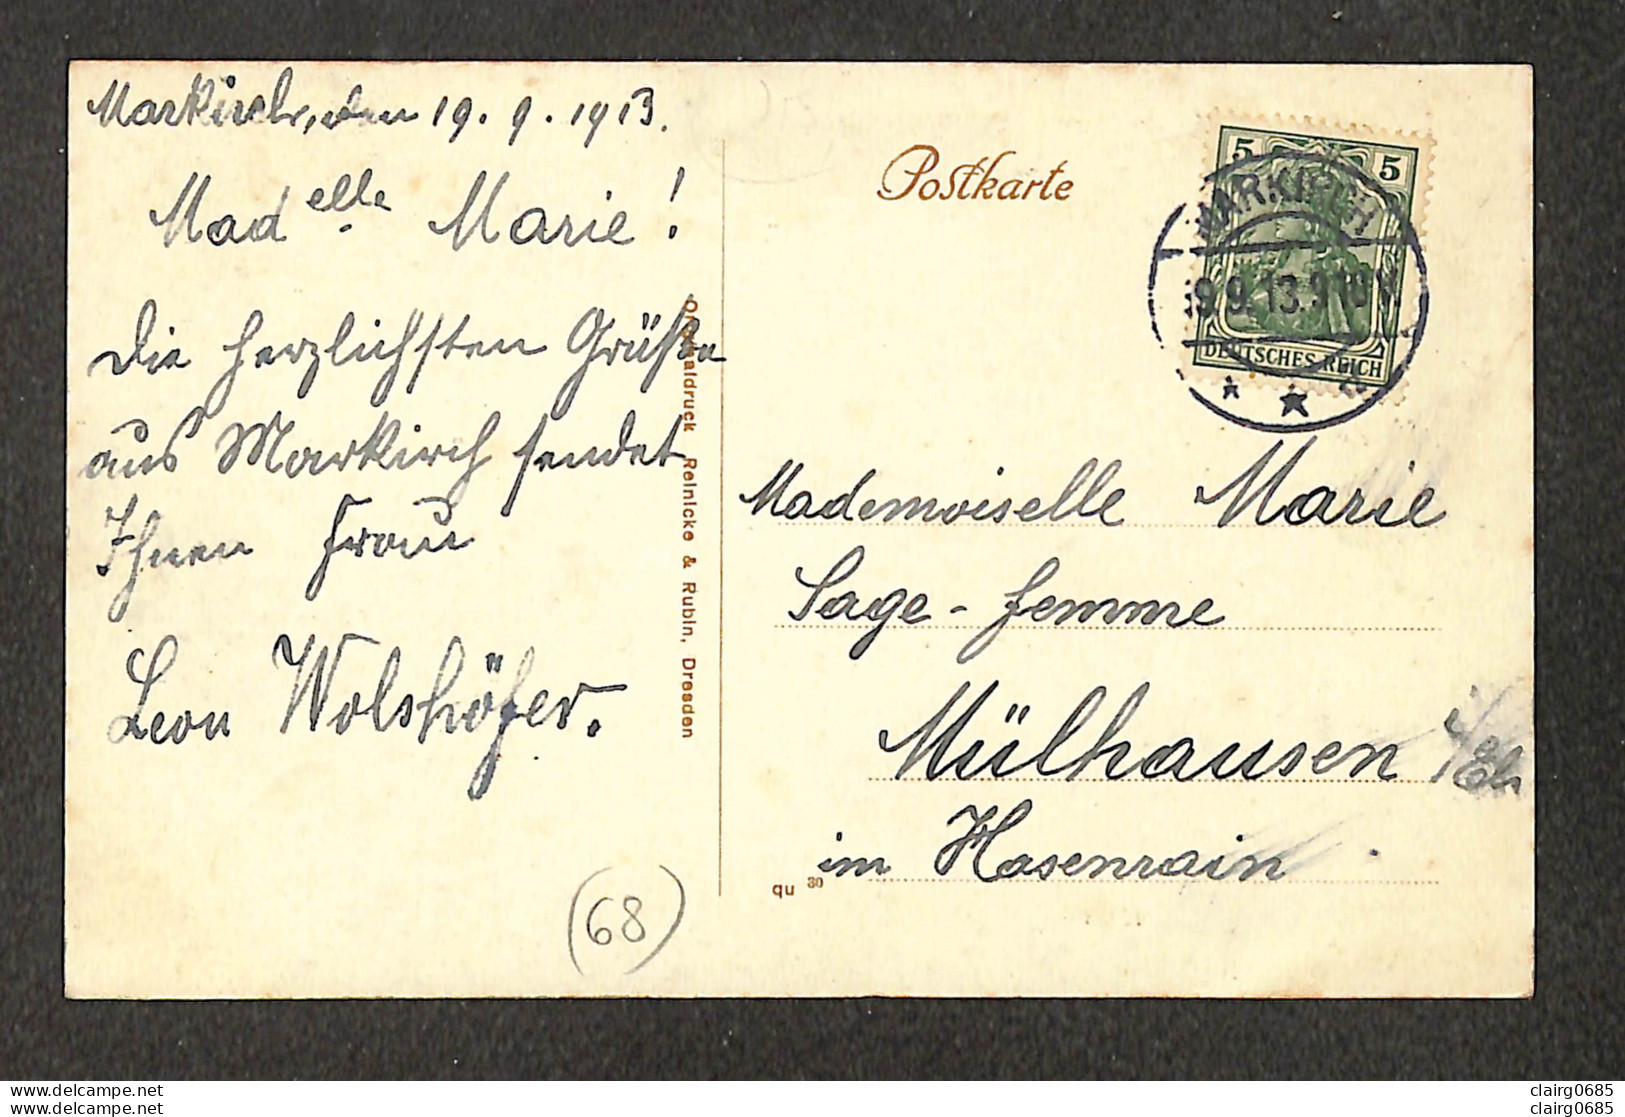 Markirch, den 19. 9. 1913.
Mad elle Marie!
Die herzlichsten Grüße
aus Markirch sendet
Ihnen Frau
Leon Wolshöfer.
Originaldruck Reinicke & Rubin, Dresden
Postkarte
5 5
DEUTSCHES REICH
MARKIRCH
19.9.13.9-10 V
Mademoiselle Marie
Sage-femme
Mülhausen i/Els
im Hasenrain
qu 30
(68)
www.delcampe.net
clairg0685
www.delcampe.net
clairg0685